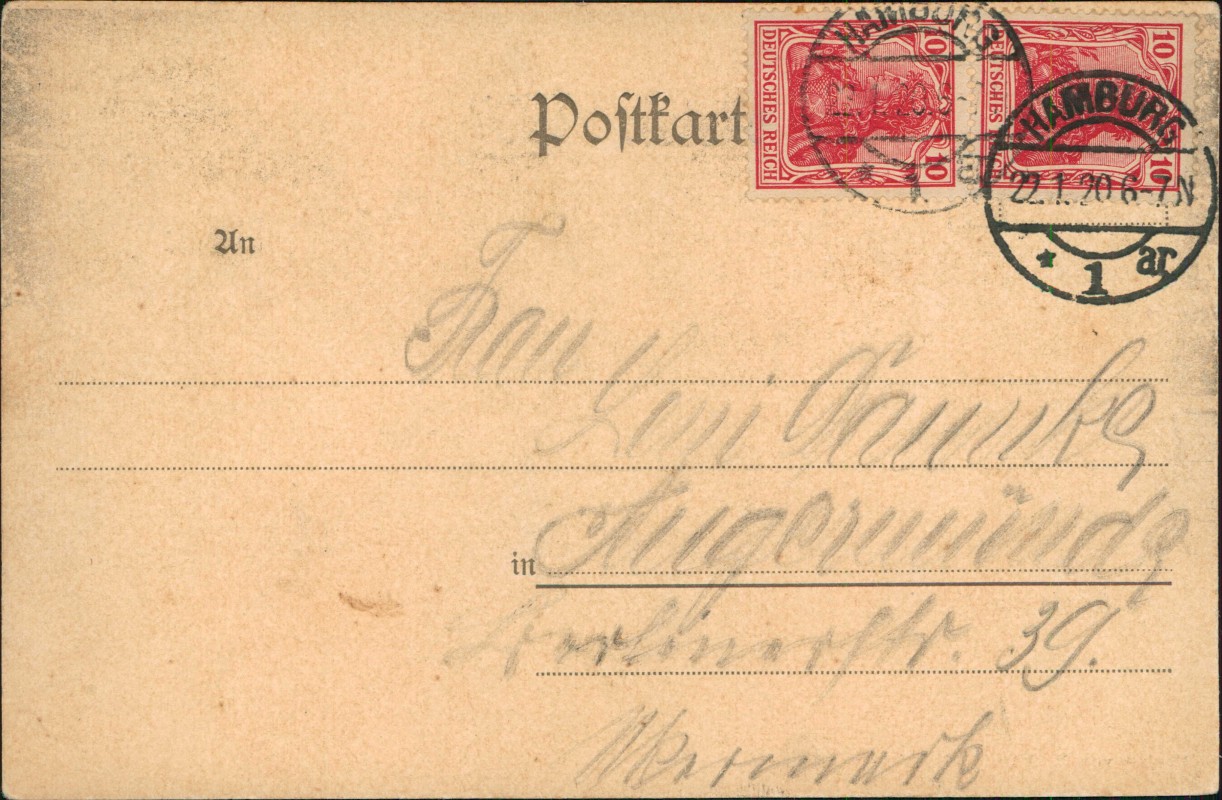 Postkart
DEUTSCHES REICH 10 10
DEUTSCHES REICH 10 10
HAMBURG
* 1
HAMBURG
22.1.20 6-7 N
* 1 ar
An
Frau
Leni
in Angermünde
Berlinerstr. 39.
Ukermark